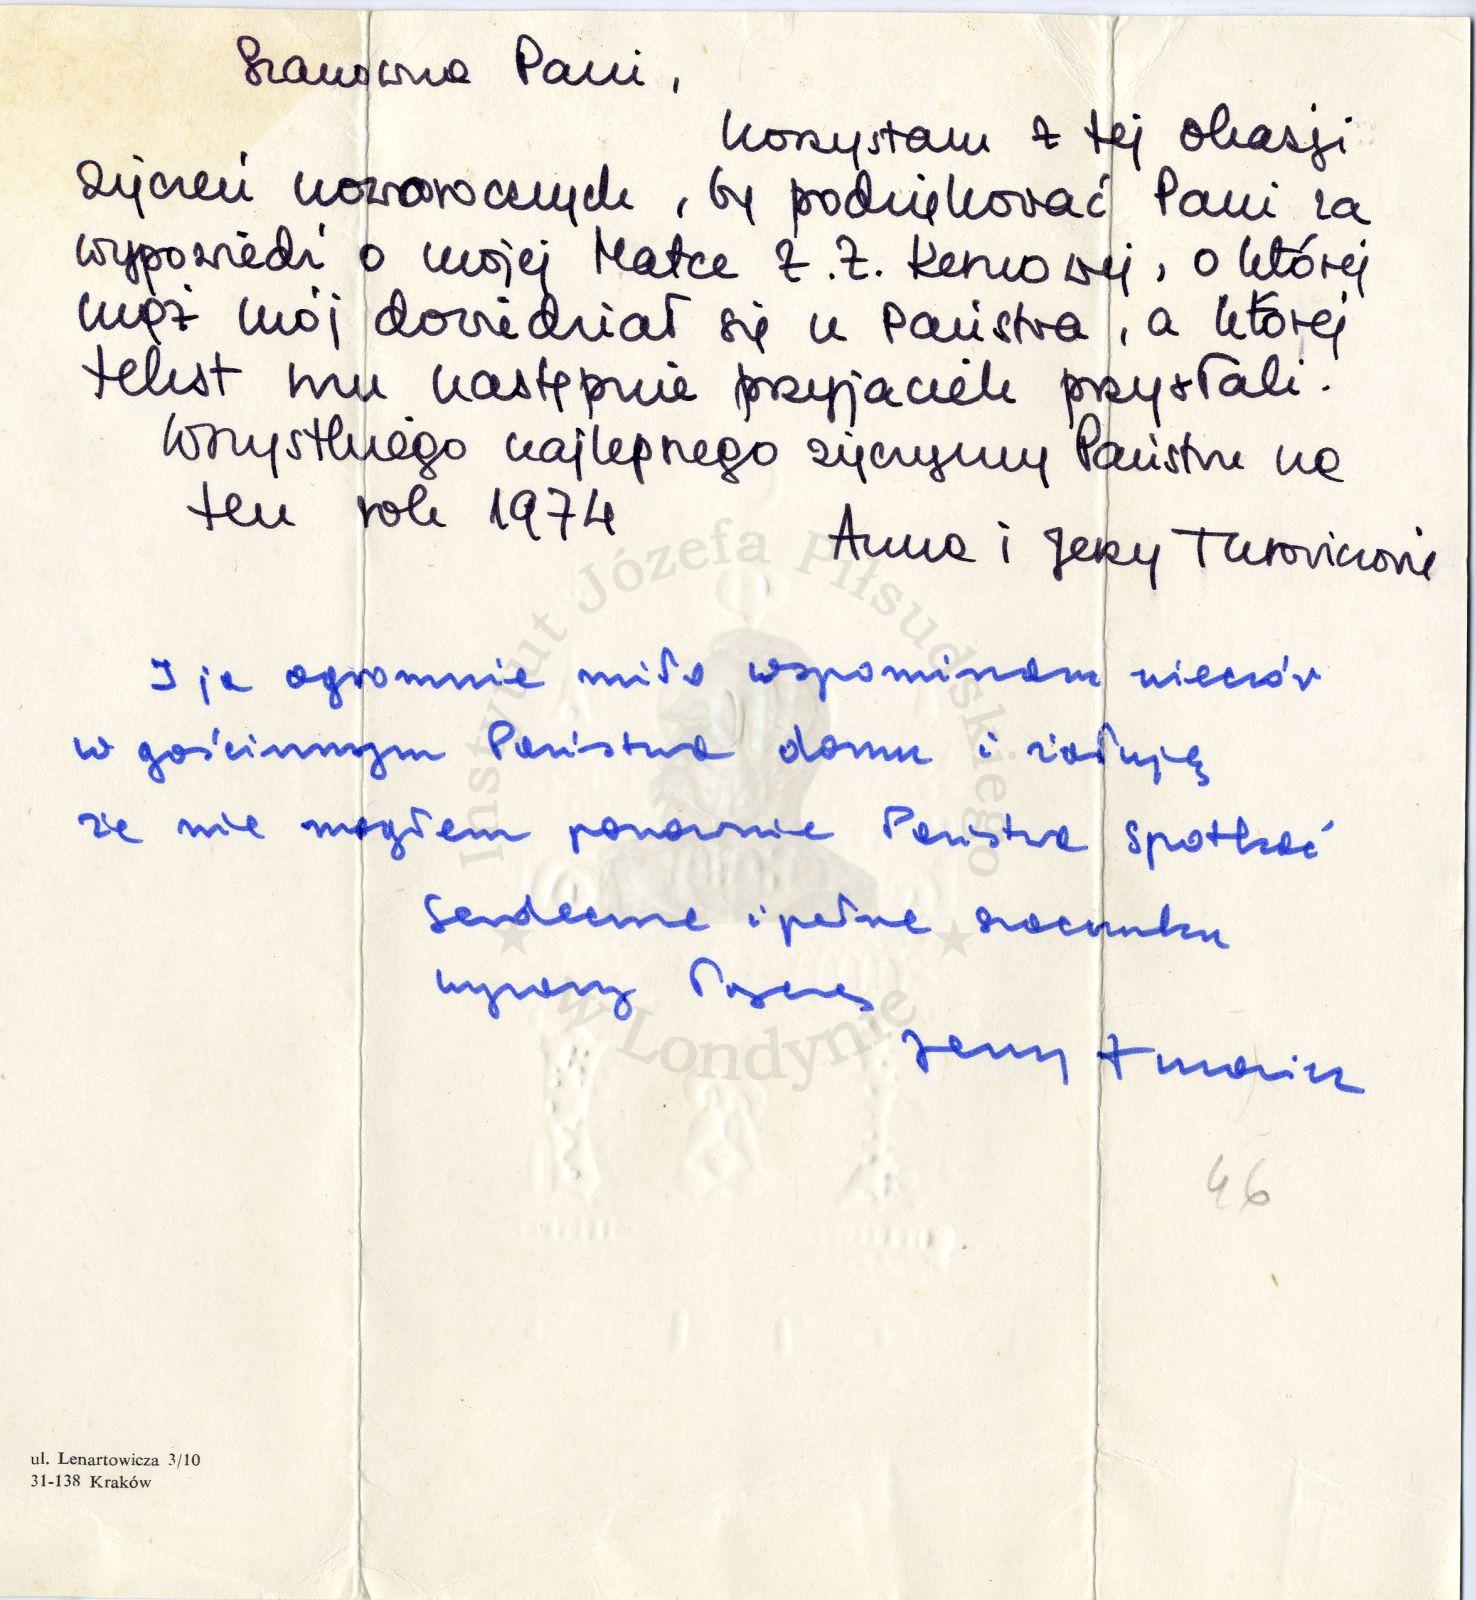 Szanowna Pani,
Korzystam z tej okazji
życzeń noworocznych, by podziękować Pani za
wypowiedź o mojej Matce Z. Z. Kernowej, o której
mąż mój dowiedział się u Państwa, a której
tekst mu następnie przyjaciele przysłali.
Wszystkiego najlepszego życzymy Państwu na
ten rok 1974
Anna i Jerzy Turowiczowie
I ja ogromnie miło wspominam wieczór
w gościnnym Państwa domu i żałuję
że nie mogłem ponownie Państwa spotkać
Serdeczne i pełne szacunku
wyrazy łączę
Jerzy Turowicz
46
Instytut Józefa Piłsudskiego
w Londynie
ul. Lenartowicza 3/10
31-138 Kraków